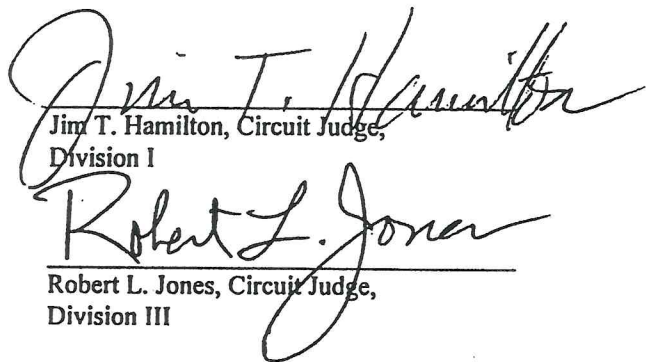 Jim T. Hamilton
Jim T. Hamilton, Circuit Judge,
Division I
Robert L. Jones
Robert L. Jones, Circuit Judge,
Division III